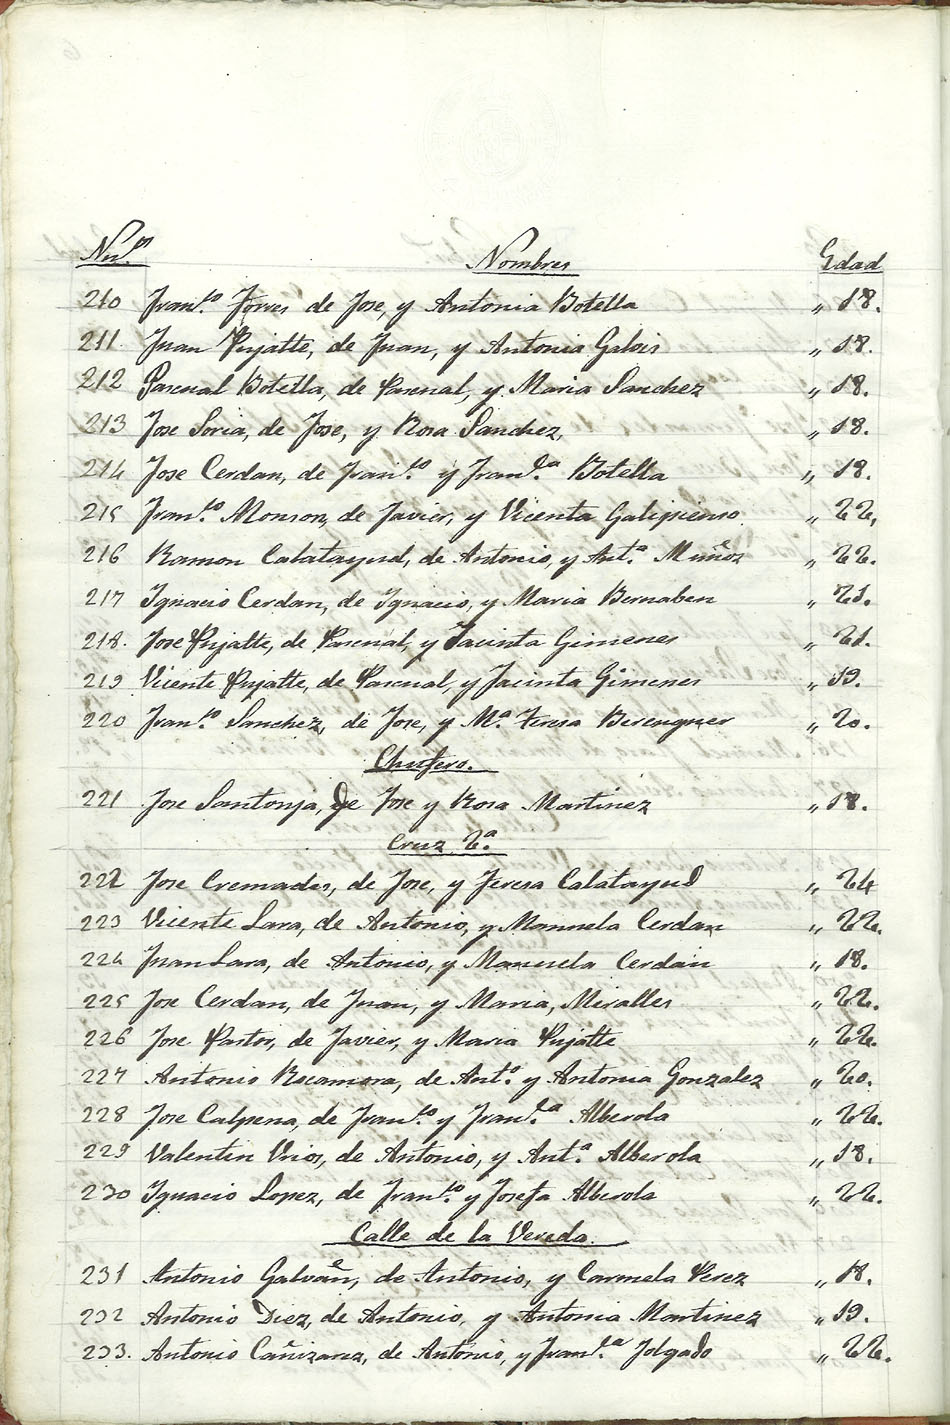 Num.ᵒˢ Nombres Edad
210 Fran.ᶜᵒ Torres de Jose, y Antonia Botella „ 18.
211. Juan Pujalte, de Juan, y Antonia Galvis „ 18.
212 Pascual Botella, de Pascual, y Maria Sanchez „ 18.
213 Jose Soria, de Jose, y Rosa Sanchez, „ 18.
214 Jose Cerdan, de Fran.ᶜᵒ y Fran.ᶜᵃ Botella „ 18.
215 Fran.ᶜᵒ Monzon, de Javier, y Vicenta Galipienso „ 22,
216 Ramon Calatayud, de Antonio, y Ant.ᵃ Muñoz „ 22.
217 Ignacio Cerdan, de Ignacio, y Maria Bernabeu „ 21.
218. Jose Pujalte, de Pascual, y Jacinta Gimenes „ 21.
219 Vicente Pujalte, de Pascual, y Jacinta Gimenes „ 19.
220 Fran.ᶜᵒ Sanchez, de Jose, y M.ᵃ Teresa Berenguer „ 20.
Chufero.
221 Jose Santonja, de Jose y Rosa Martinez „ 18.
Cruz 2.ᵃ
222 Jose Cremades, de Jose, y Teresa Calatayud „ 24
223 Vicente Lara, de Antonio, y Manuela Cerdan „ 22.
224 Juan Lara, de Antonio, y Manuela Cerdán „ 18.
225 Jose Cerdan, de Juan, y Maria, Miralles „ 22.
226 Jose Pastor, de Javier, y Maria Pujalte „ 22.
227 Antonio Rocamora, de Ant.ᵒ y Antonia Gonzalez „ 20.
228 Jose Calpena, de Fran.ᶜᵒ y Fran.ᶜᵃ Alberola „ 22.
229 Valentin Urios, de Antonio, y Ant.ᵃ Alberola „ 18.
230 Ignacio Lopez, de Fran.ᶜᵒ y Josefa Alberola „ 22.
Calle de la Vereda.
231 Antonio Galvañ, de Antonio, y Carmela Perez „ 18.
232 Antonio Diez, de Antonio, y Antonia Martinez „ 19.
233. Antonio Cañizares, de Antonio, y Fran.ᶜᵃ Folgado „ 22.